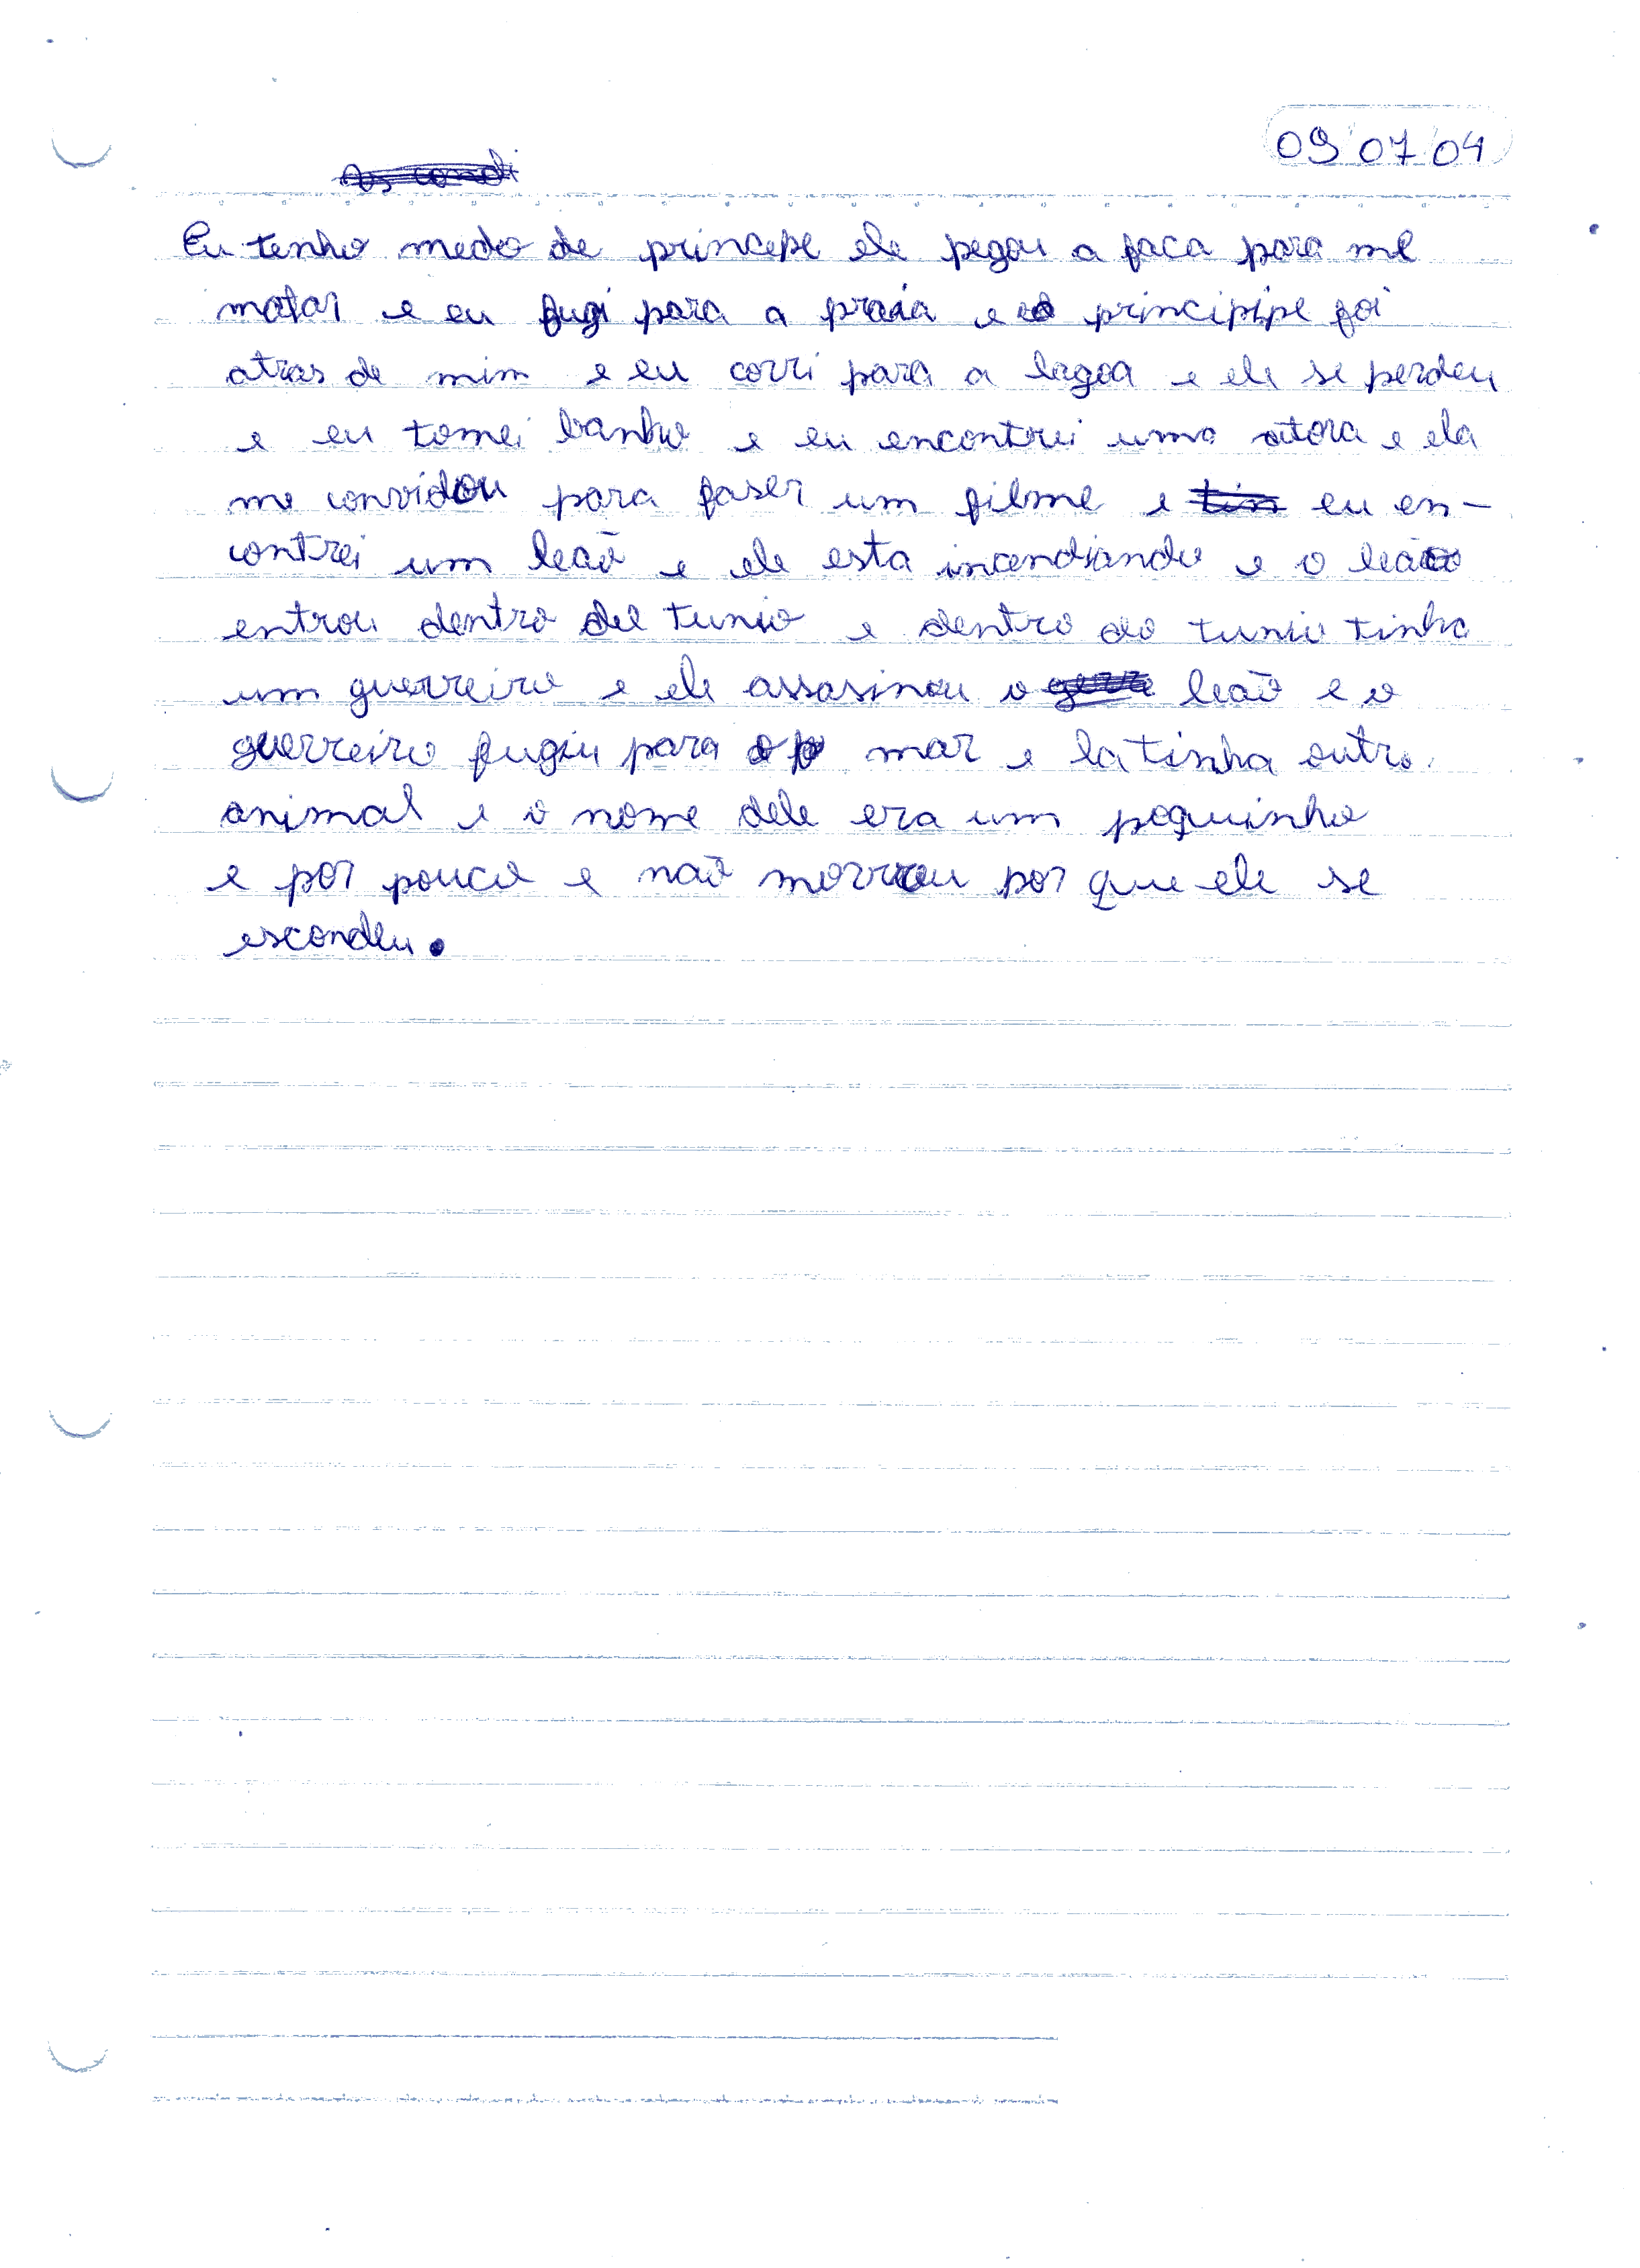 09 07 04
Eu tenho medo de princepe ele pegou a faca para me
matar e eu fugi para a praia e o principipe foi
atras de mim e eu corri para a lagoa e ele se perdeu
e eu tomei banho e eu encontrei uma atora e ela
me convidou para faser um filme e eu en-
contrei um leaõ e ele esta incendiando e o leaõ
entrou dentro del tunio e dentro do tunio tinha
um guerreiro e ele assasinou o leaõ e o
guerreiro fugiu para o mar e la tinha outro
animal e o nome dele era um peguinho
e por pouco e naõ morreu por que ele se
escondeu.